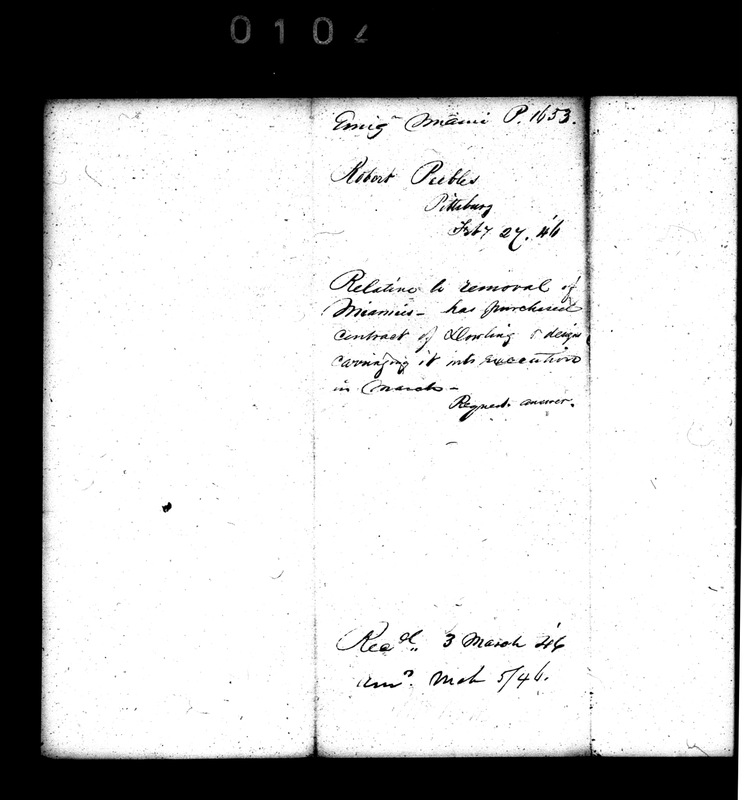 0102
Emign Miami P. 1653.
Robert Peebles
Pittsburg
Feby 27. '46
Relative to removal of
Miamies - has purchased
contract of Dowling & design
carrying it into execution
in March -
Requests answer.
Recd., 3 March '46
Ansd. Mch 5/46.